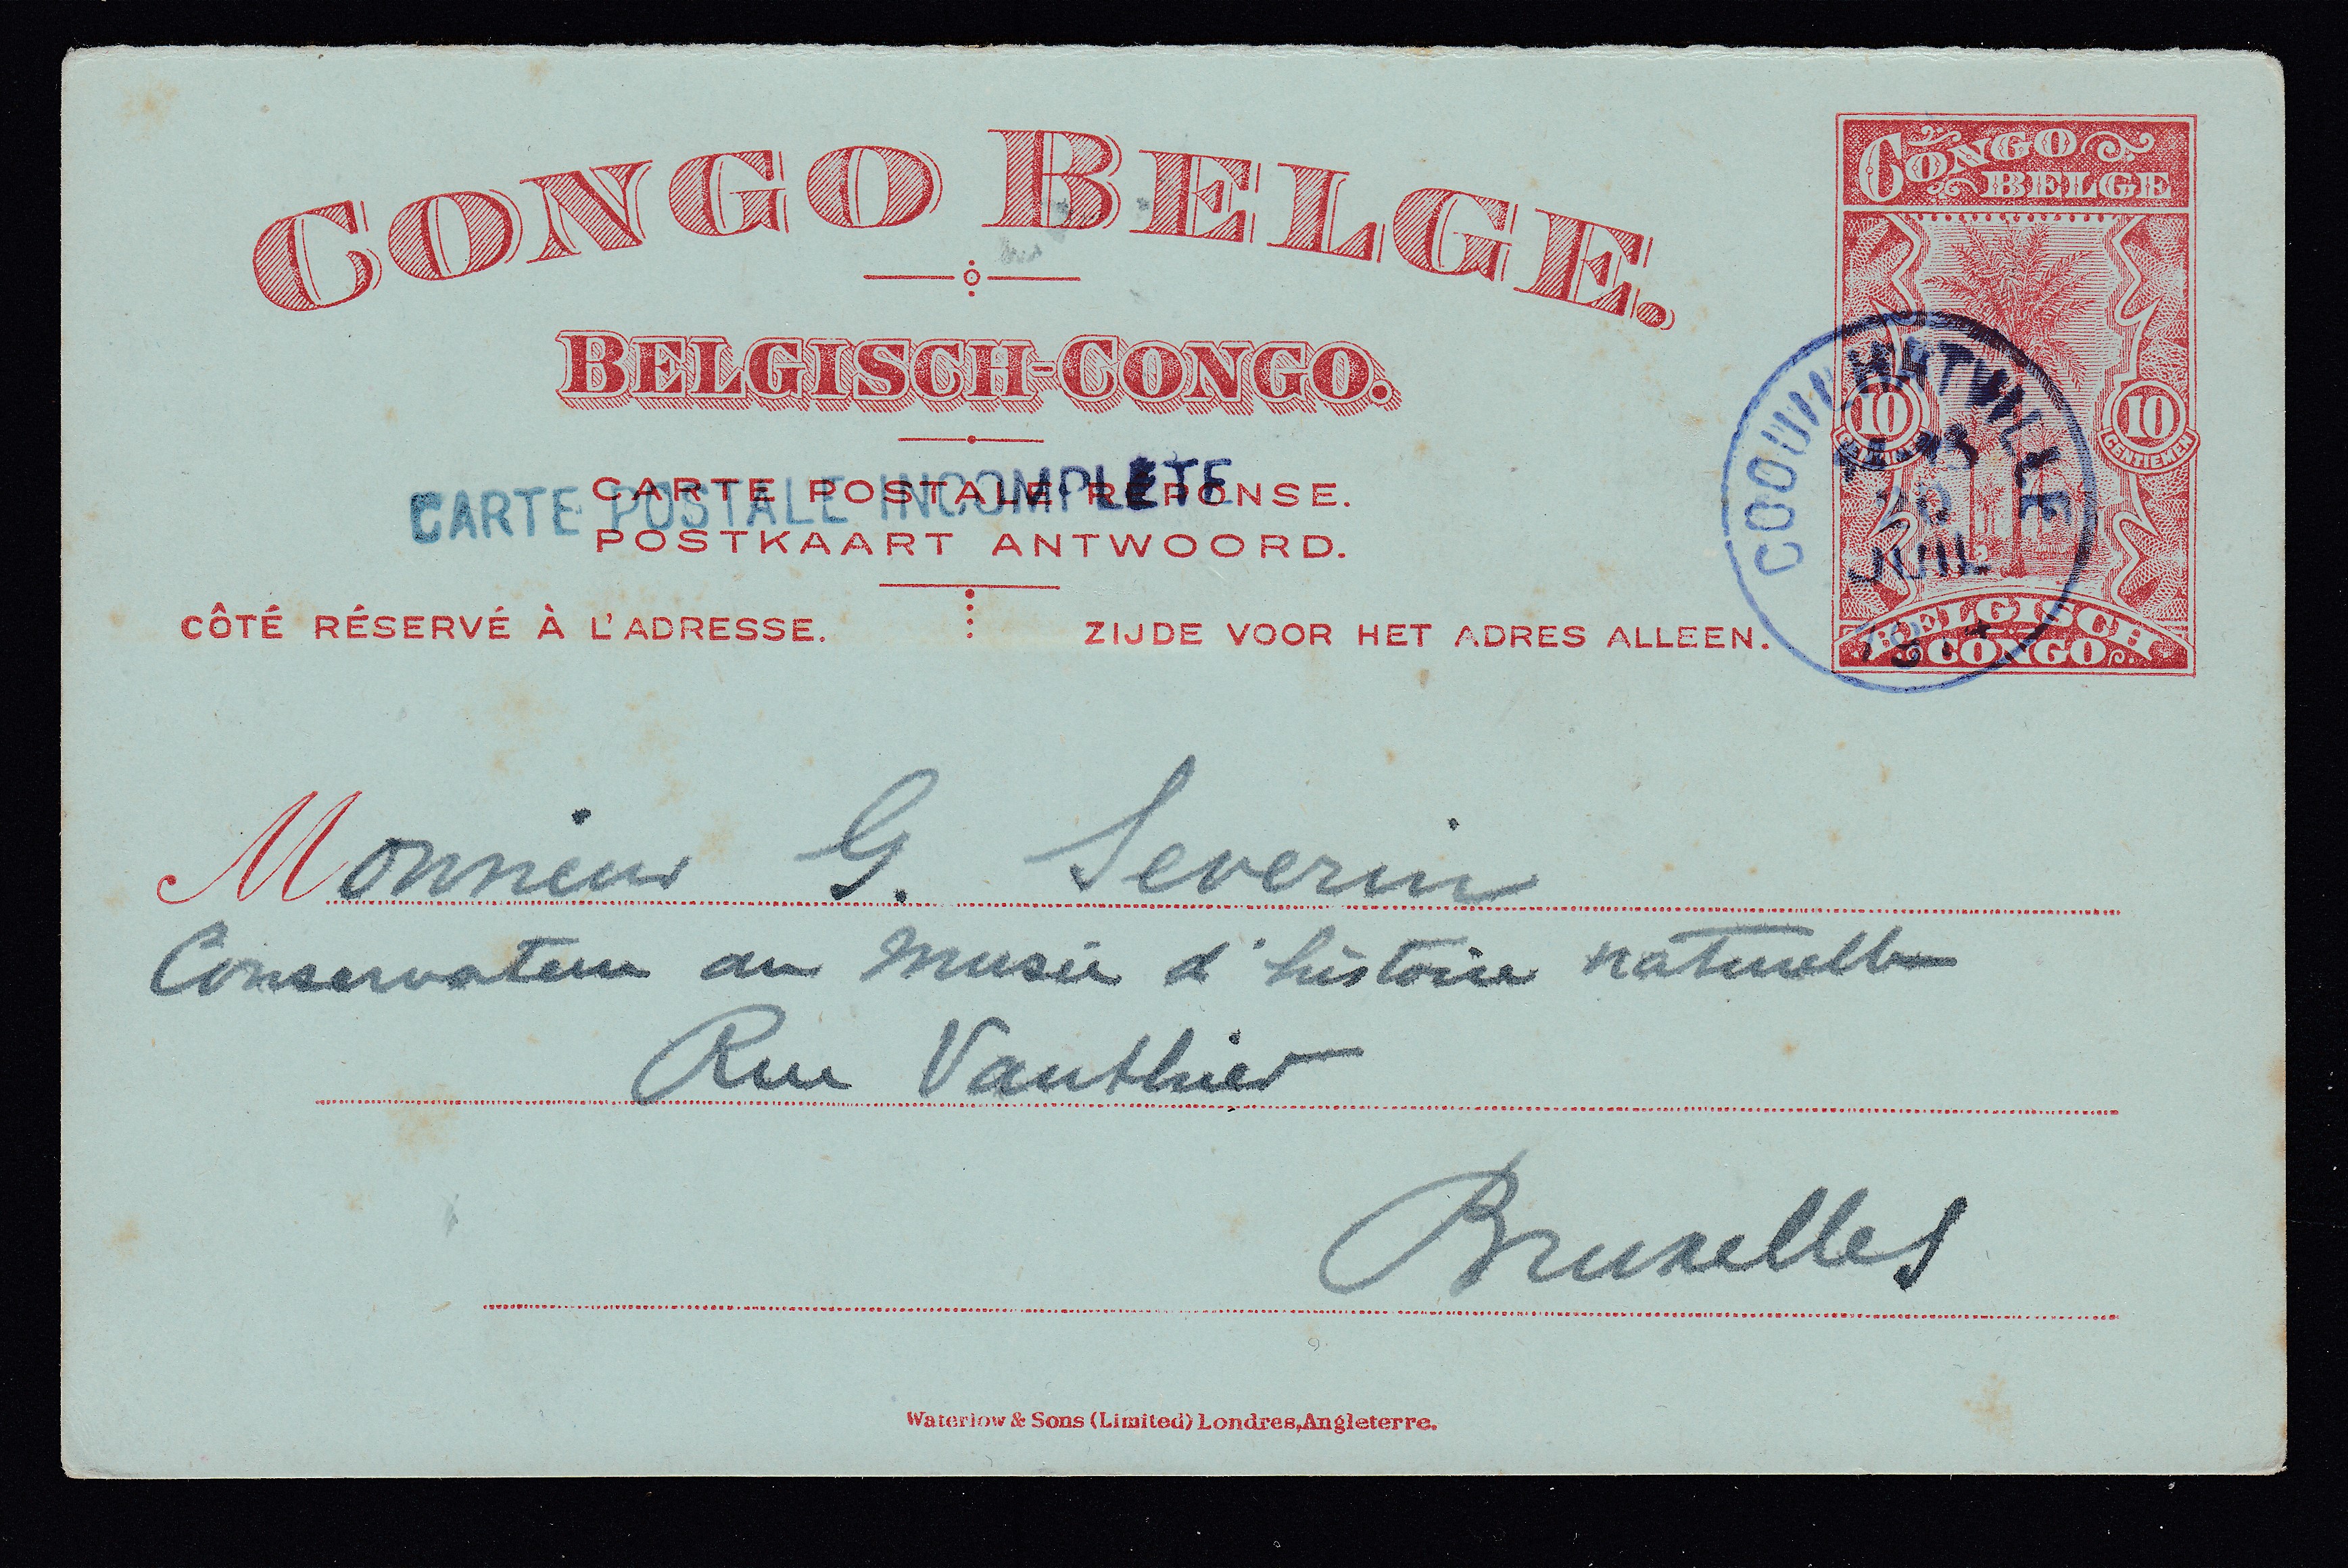 CONGO BELGE.
BELGISCH-CONGO.
CARTE POSTALE RÉPONSE.
CARTE POSTALE INCOMPLÈTE
POSTKAART ANTWOORD.
CÔTÉ RÉSERVÉ À L'ADRESSE. ZIJDE VOOR HET ADRES ALLEEN.
CONGO
BELGE
10 10
CENTIEMEN
BELGISCH
CONGO
COQUILHATVILLE
20
JUIL
Monsieur G. Severin
Conservateur au Musée d'histoire naturelle
Rue Vauthier
Bruxelles
Waterlow & Sons (Limited) Londres, Angleterre.